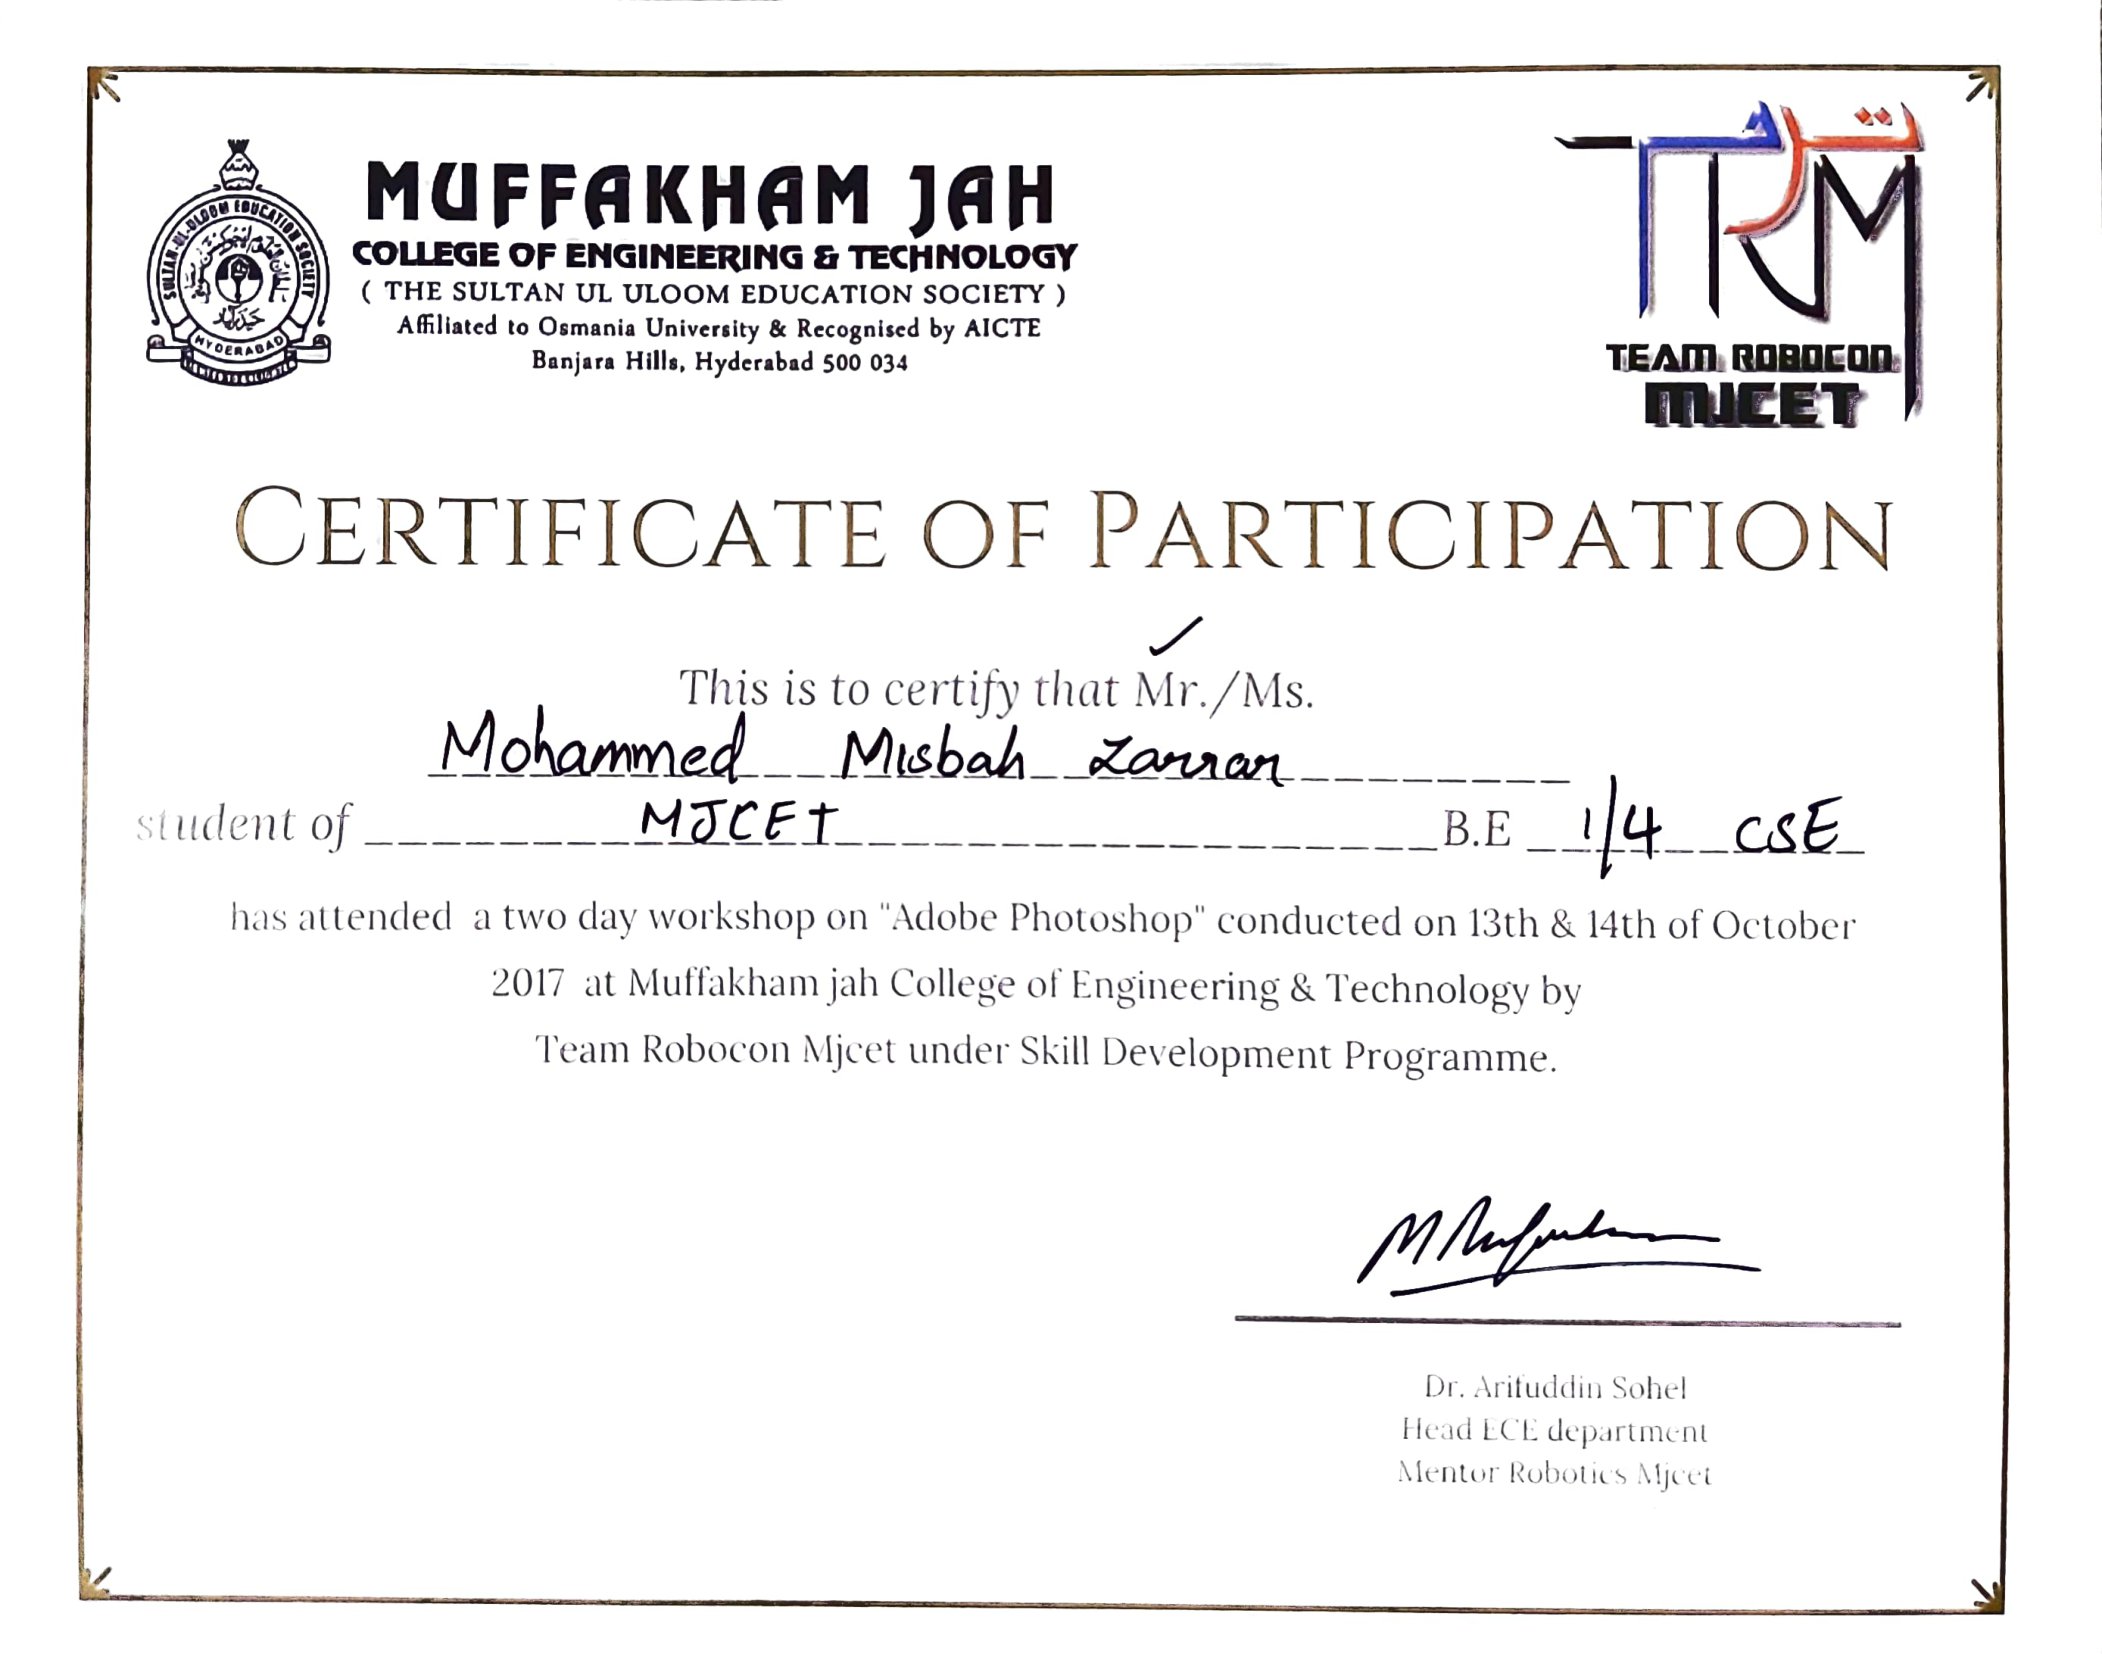 MUFFAKHAM JAH
COLLEGE OF ENGINEERING & TECHNOLOGY
( THE SULTAN UL ULOOM EDUCATION SOCIETY )
Affiliated to Osmania University & Recognised by AICTE
Banjara Hills, Hyderabad 500 034
SULTAN-UL-ULOOM EDUCATION SOCIETY
HYDERABAD
TRM
TEAM ROBOCON
MJCET
CERTIFICATE OF PARTICIPATION
This is to certify that Mr./Ms.
Mohammed Misbah Zarrar
student of MJCET B.E 1/4 CSE
has attended a two day workshop on "Adobe Photoshop" conducted on 13th & 14th of October
2017 at Muffakham jah College of Engineering & Technology by
Team Robocon Mjcet under Skill Development Programme.
Dr. Arifuddin Sohel
Head ECE department
Mentor Robotics Mjcet